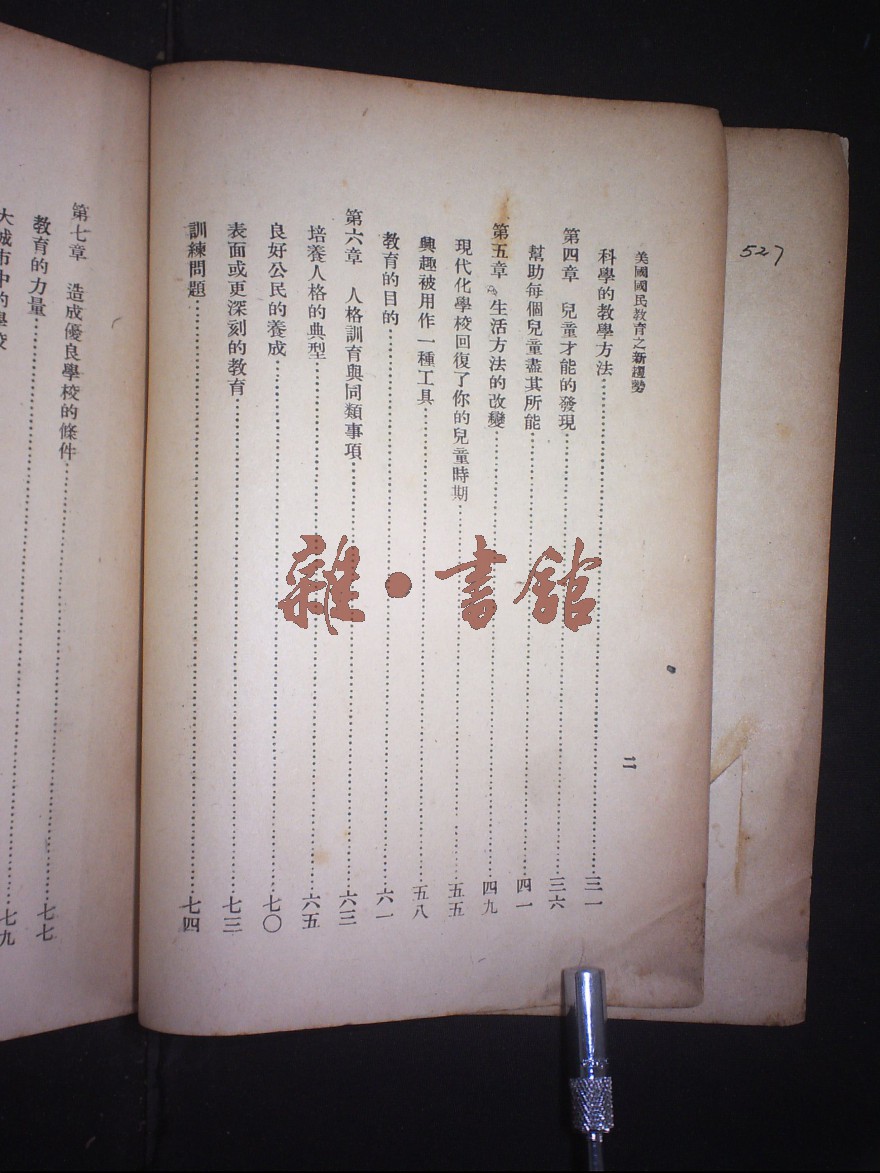 527
美國國民教育之新趨勢
二
科學的教學方法……三一
第四章 兒童才能的發現……三六
幫助每個兒童盡其所能……四一
第五章 生活方法的改變……四九
現代化學校回復了你的兒童時期……五五
興趣被用作一種工具……五八
教育的目的……六一
第六章 人格訓育與同類事項……六三
培養人格的典型……六五
良好公民的養成……七〇
表面或更深刻的教育……七三
訓練問題……七四
第七章 造成優良學校的條件……七七
教育的力量……七七
大城市中的學校……七九
雜·書館